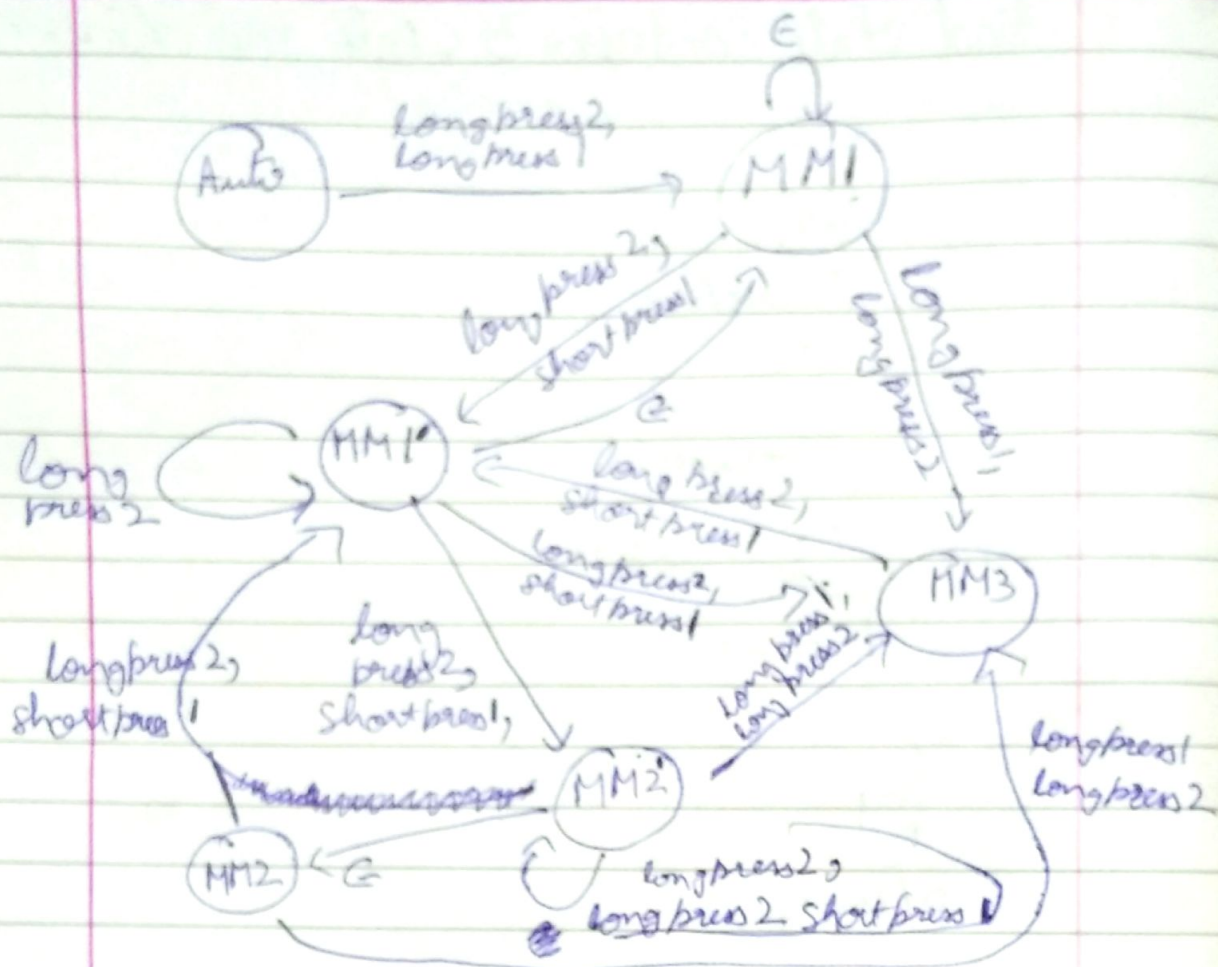 ϵ
Longpress2,
Longpress1
Auto
MM1
longpress2,
shortpress1
longpress1,
longpress2
ϵ
MM1'
long
press2
long press2,
shortpress1
longpress2,
shortpress1
MM3
longpress1,
long press2
long
press2,
shortpress1,
Longpress2,
shortpress1
longpress1
longpress2
MM2'
MM2
ϵ
longpress2,
longpress2 shortpress1